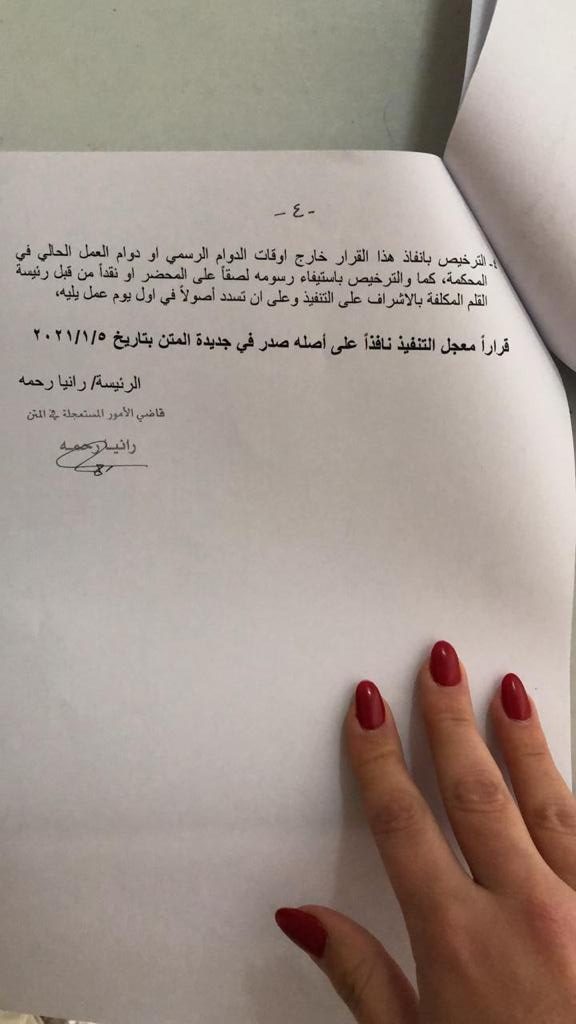 - ٤ -
٤- الترخيص بانفاذ هذا القرار خارج اوقات الدوام الرسمي او دوام العمل الحالي في
المحكمة، كما والترخيص باستيفاء رسومه لصقاً على المحضر او نقداً من قبل رئيسة
القلم المكلفة بالاشراف على التنفيذ وعلى ان تسدد أصولاً في اول يوم عمل يليه،
قراراً معجل التنفيذ نافذاً على أصله صدر في جديدة المتن بتاريخ ٢٠٢١/١/٥
الرئيسة/ رانيا رحمه
قاضي الأمور المستعجلة في المتن
رانيا رحمه